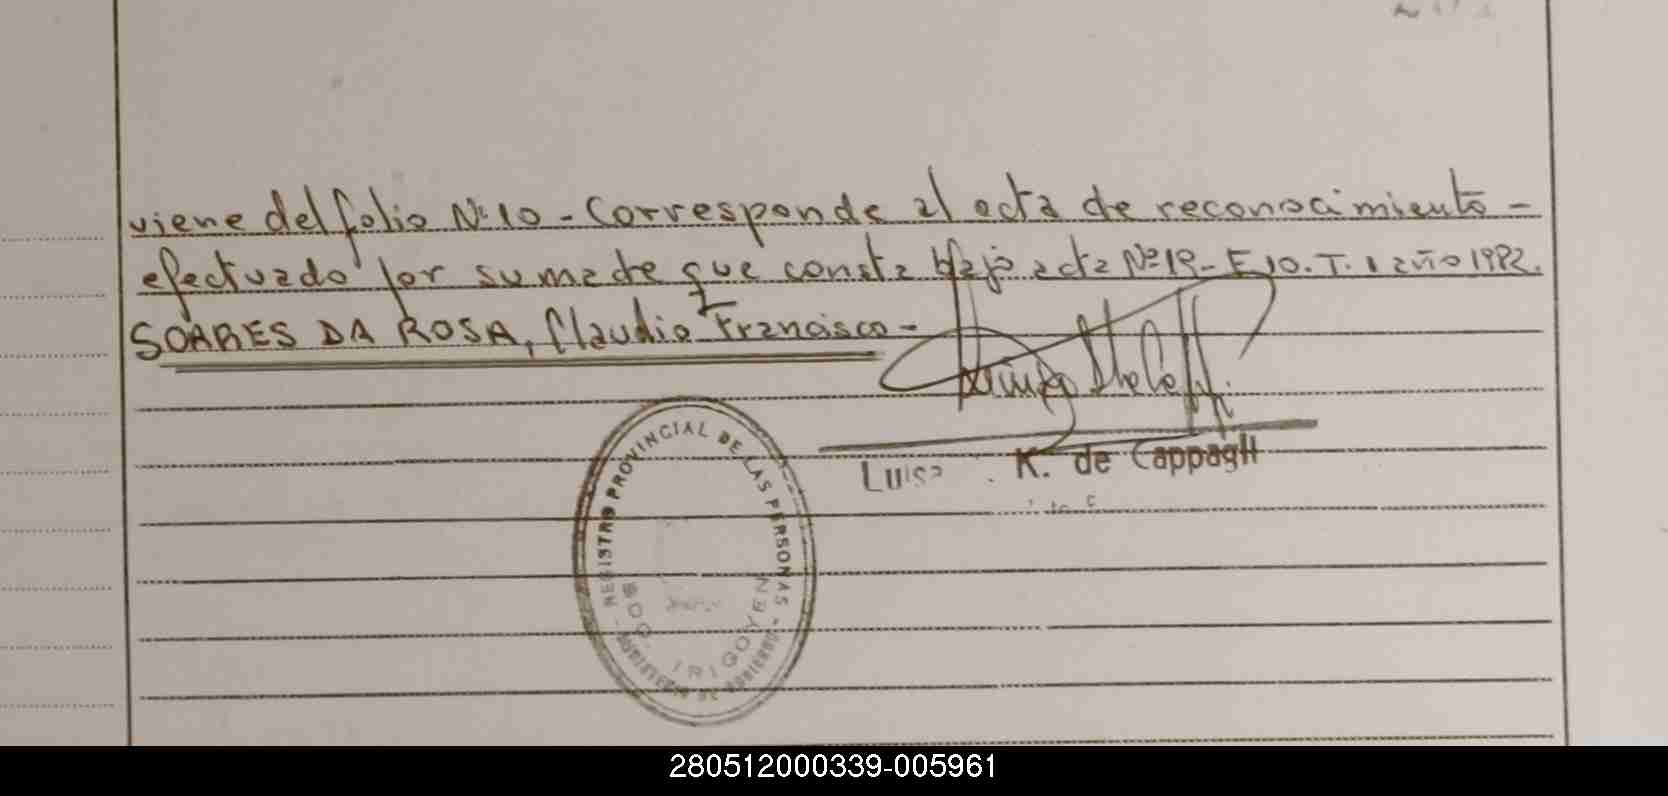 viene del folio Nº10 - Corresponde al acta de reconocimiento -
efectuado por su madre que consta bajo acta Nº19 - F 10. T. 1 año 1982.
SOARES DA ROSA, Claudio Francisco -
Luisa K. de Cappagli
REGISTRO PROVINCIAL DE LAS PERSONAS - MINISTERIO DE GOBIERNO -
BDO. IRIGOYEN
280512000339-005961